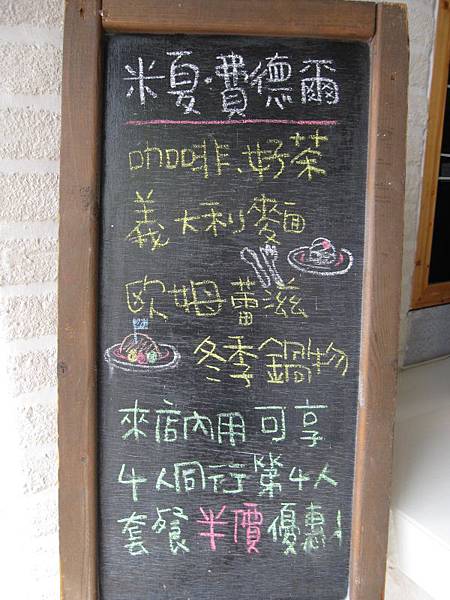 米夏·費德爾
咖啡、好茶
義大利麵
歐姆蕾滋
冬季鍋物
來店內用可享
4人同行第4人
套餐半價優惠！